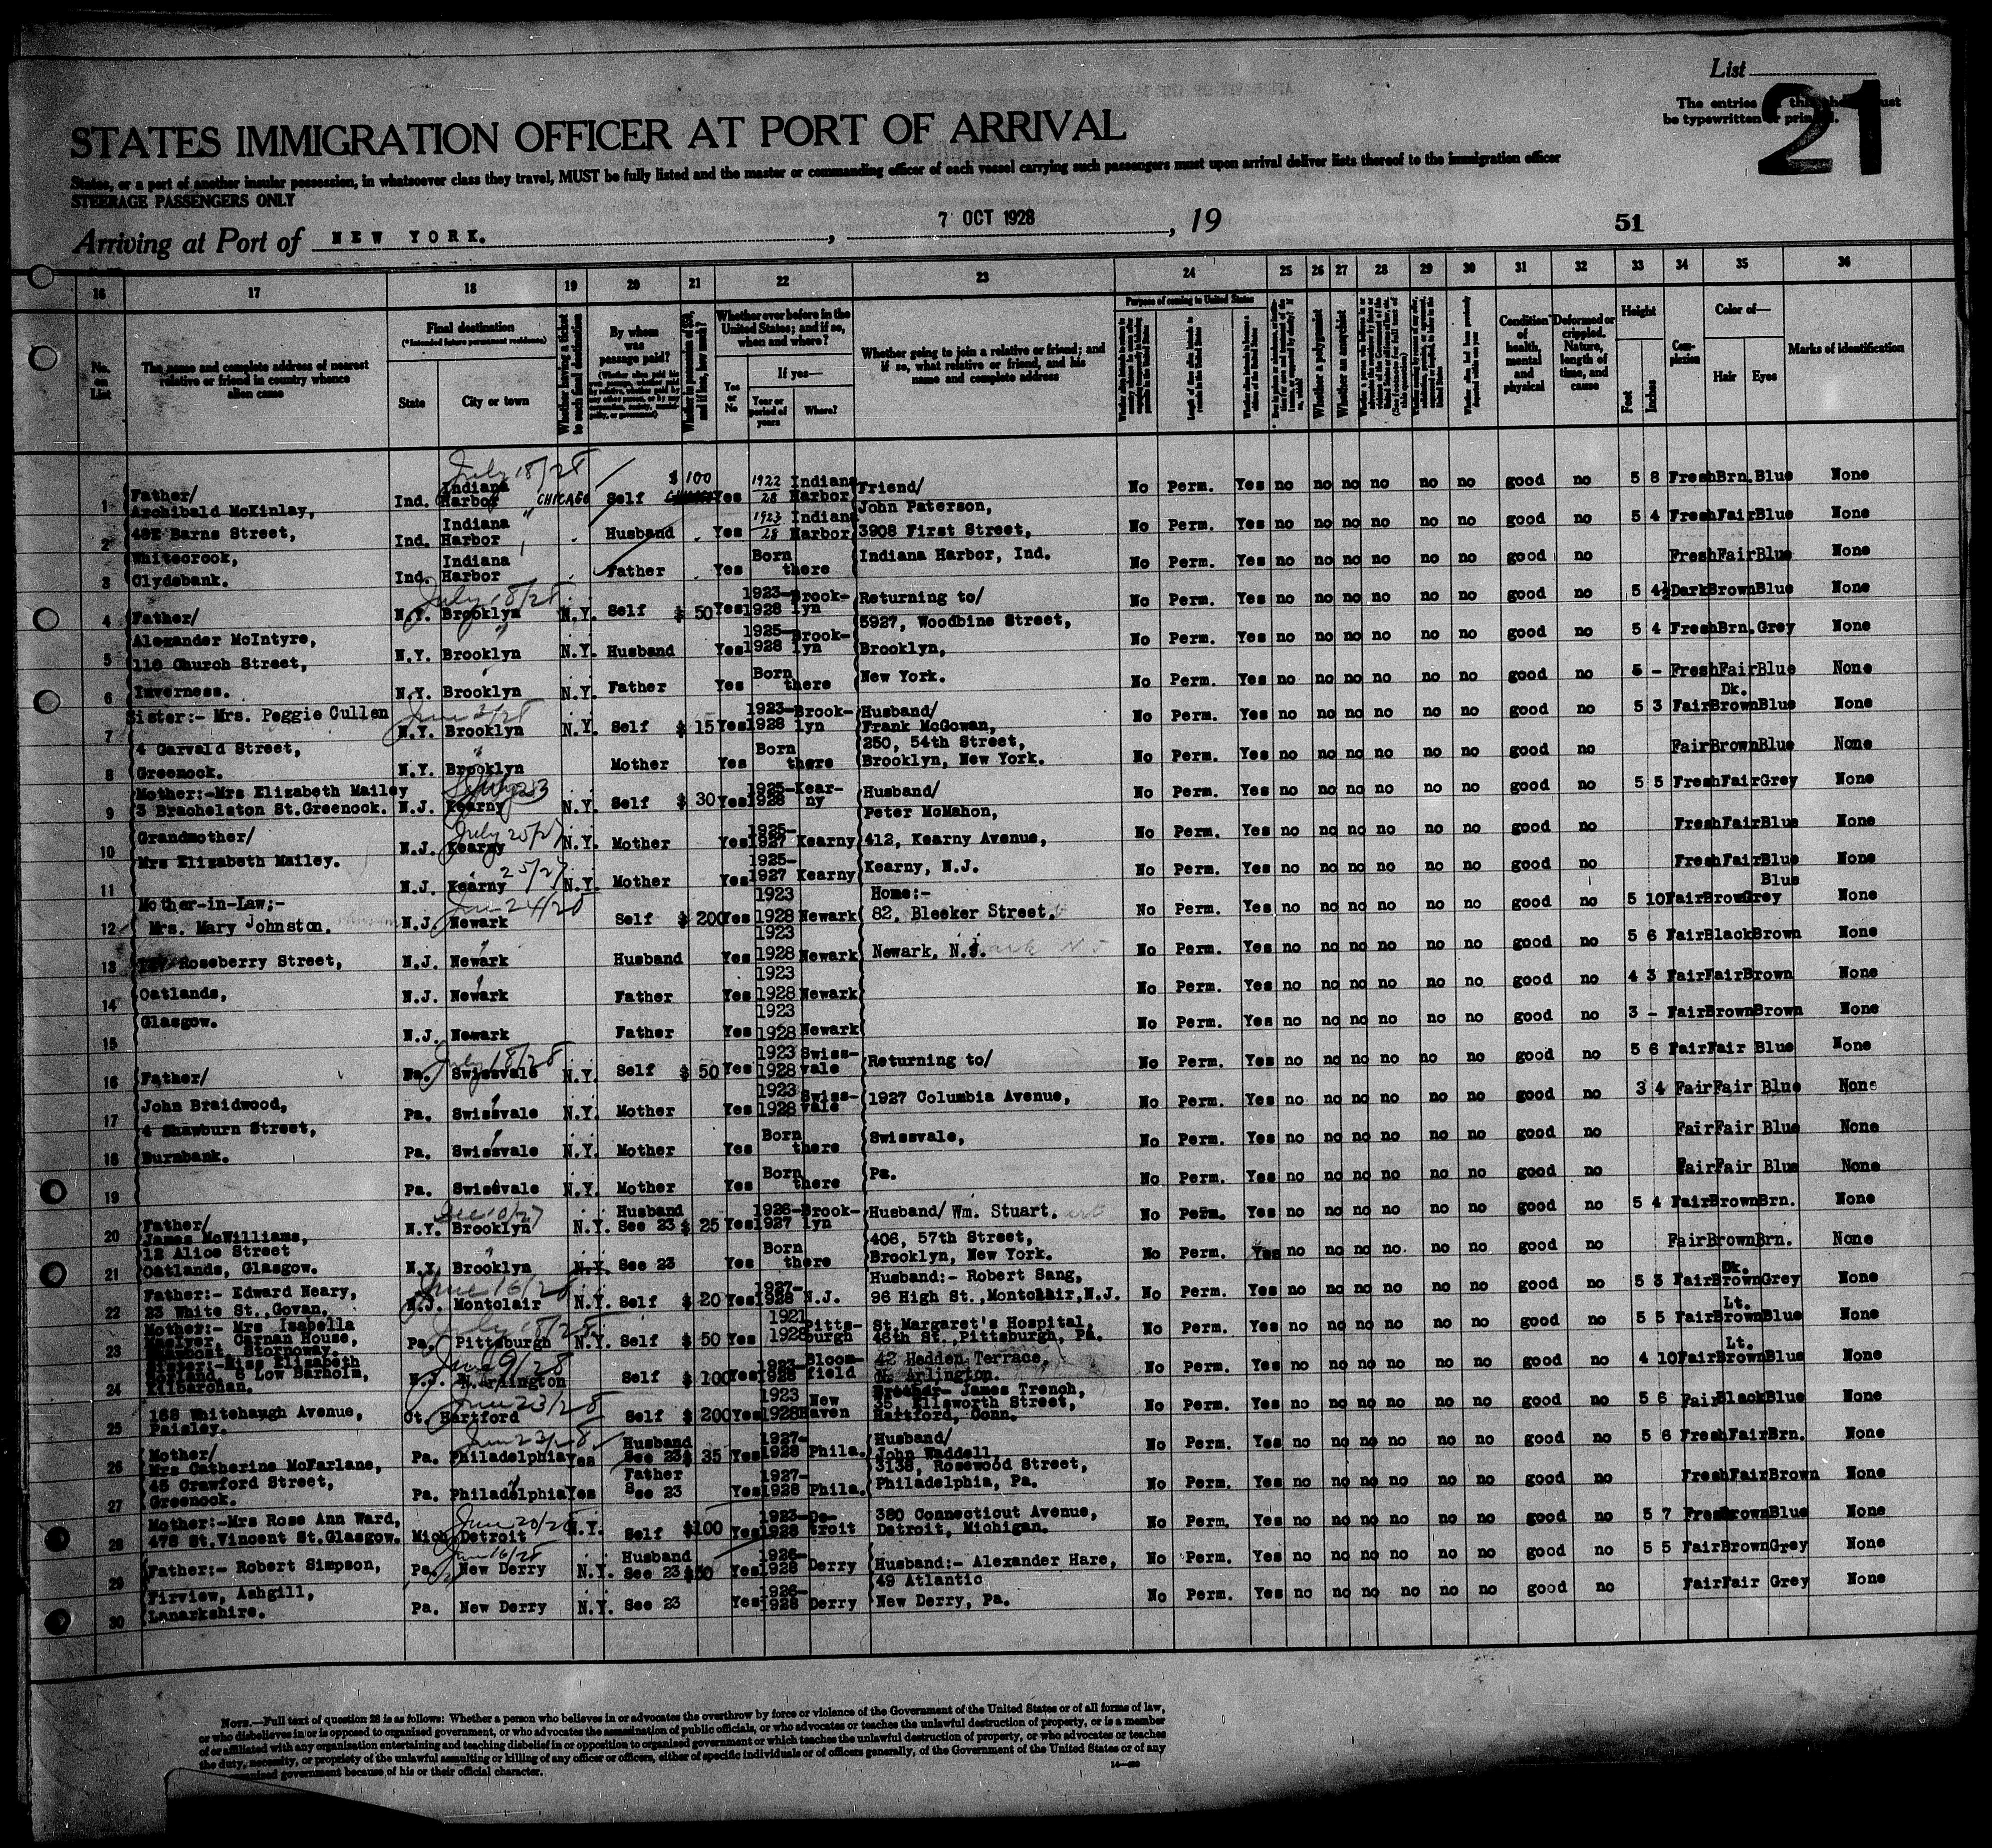 List
The entries on this sheet must
be typewritten or printed.
21
STATES IMMIGRATION OFFICER AT PORT OF ARRIVAL
States, or a port of another insular possession, in whatsoever class they travel, MUST be fully listed and the master or commanding officer of each vessel carrying such passengers must upon arrival deliver lists thereof to the immigration officer
STEERAGE PASSENGERS ONLY
Arriving at Port of NEW YORK. , 7 OCT 1928 , 19
51
16 17 18 19 20 21 22 23 24 25 26 27 28 29 30 31 32 33 34 35 36
No. on List
The name and complete address of nearest relative or friend in country whence alien came
Final destination
(*Intended future permanent residence)
State
City or town
Whether having a ticket to such final destination
By whom was passage paid?
Whether in possession of $50, and if less, how much?
Whether ever before in the United States; and if so, when and where?
Yes or No
If yes—
Year or period of years
Where?
Whether going to join a relative or friend; and if so, what relative or friend, and his name and complete address
Purpose of coming to United States
Whether a polygamist
Whether an anarchist
Condition of health, mental and physical
Deformed or crippled. Nature, length of time, and cause
Height
Feet
Inches
Complexion
Color of—
Hair
Eyes
Marks of identification
July 18/28
1 Father/ Ind. Indiana Harbor CHICAGO Self $100 Yes 1922 28 Indiana Harbor Friend/ No Perm. Yes no no no no no no good no 5 8 Fresh Brn. Blue None
Archibald McKinlay, John Paterson,
2 48E Barns Street, Ind. Indiana Harbor Husband Yes 1923 28 Indiana Harbor 3908 First Street, No Perm. Yes no no no no no no good no 5 4 Fresh Fair Blue None
Whitecrook,
3 Clydebank. Ind. Indiana Harbor Father Yes Born there Indiana Harbor, Ind. No Perm. Yes no no no no no no good no Fresh Fair Blue None
July 18/28
4 Father/ N.Y. Brooklyn N.Y. Self $ 50 Yes 1923-1928 Brooklyn Returning to/ No Perm. Yes no no no no no no good no 5 4½ Dark Brown Blue None
Alexander McIntyre, 5927, Woodbine Street,
5 110 Church Street, N.Y. Brooklyn N.Y. Husband Yes 1925-1928 Brooklyn Brooklyn, No Perm. Yes no no no no no no good no 5 4 Fresh Brn. Grey None
6 Inverness. N.Y. Brooklyn N.Y. Father Yes Born there New York. No Perm. Yes no no no no no no good no 5 - Fresh Fair Blue None
7 Sister:- Mrs. Peggie Cullen N.Y. Brooklyn N.Y. Self $ 15 Yes 1923-1928 Brooklyn Husband/ No Perm. Yes no no no no no no good no 5 3 Fair Dk. Brown Blue None
Frank McGowan,
4 Garvald Street, 250, 54th Street,
8 Greenock. N.Y. Brooklyn Mother Yes Born there Brooklyn, New York. No Perm. Yes no no no no no no good no Fair Brown Blue None
Mother:-Mrs Elizabeth Mailey
9 3 Brachelston St.Greenock. N.J. Kearny N.Y. Self $ 30 Yes 1925-1928 Kearny Husband/ No Perm. Yes no no no no no no good no 5 5 Fresh Fair Grey None
Grandmother/ Peter McMahon,
July 20/27
10 Mrs Elizabeth Mailey. N.J. Kearny N.Y. Mother Yes 1925-1927 Kearny 412, Kearny Avenue, No Perm. Yes no no no no no no good no Fresh Fair Blue None
25/27
11 N.J. Kearny N.Y. Mother Yes 1925-1927 Kearny Kearny, N.J. No Perm. Yes no no no no no no good no Fresh Fair Blue None
Mother-in-Law;- Home:-
12 Mrs. Mary Johnston. N.J. Newark Self $ 200 Yes 1923 1928 Newark 82, Bleeker Street. No Perm. Yes no no no no no no good no 5 10 Fair Brown Blue Grey None
13 Roseberry Street, N.J. Newark Husband Yes 1923 1928 Newark Newark, N.J. No Perm. Yes no no no no no no good no 5 6 Fair Black Brown None
14 Oatlands, N.J. Newark Father Yes 1923 1928 Newark No Perm. Yes no no no no no no good no 4 3 Fair Fair Brown None
15 Glasgow. N.J. Newark Father Yes 1923 1928 Newark No Perm. Yes no no no no no no good no 3 - Fair Brown Brown None
July 18/28
16 Father/ Pa. Swissvale N.Y. Self $ 50 Yes 1923 1928 Swissvale Returning to/ No Perm. Yes no no no no no no good no 5 6 Fair Fair Blue None
17 John Braidwood, Pa. Swissvale N.Y. Mother Yes 1923 1928 Swissvale 1927 Columbia Avenue, No Perm. Yes no no no no no no good no 3 4 Fair Fair Blue None
4 Shawburn Street,
18 Burnbank. Pa. Swissvale N.Y. Mother Yes Born there Swissvale, No Perm. Yes no no no no no no good no Fair Fair Blue None
19 Pa. Swissvale N.Y. Mother Yes Born there Pa. No Perm. Yes no no no no no no good no Fair Fair Blue None
Dec 10/27
20 Father/ N.Y. Brooklyn N.Y. Husband See 23 $ 25 Yes 1926-1927 Brooklyn Husband/ Wm. Stuart. No Perm. Yes no no no no no no good no 5 4 Fair Brown Brn. None
James McWilliams, 406, 57th Street,
12 Alice Street
21 Oatlands, Glasgow. N.Y. Brooklyn N.Y. See 23 Yes Born there Brooklyn, New York. No Perm. Yes no no no no no no good no Fair Brown Brn. None
June 16/28
Father:- Edward Neary, Husband:- Robert Sang,
22 23 White St., Govan, N.J. Montclair N.Y. Self $ 20 Yes 1927-1928 N.J. 96 High St., Montclair, N.J. No Perm. Yes no no no no no no good no 5 3 Fair Dk. Brown Grey None
Mother:- Mrs. Isabella
23 McIver, Carnan House, Stornoway. Pa. Pittsburgh N.Y. Self $ 50 Yes 1921 1928 Pittsburgh St.Margaret's Hospital, 46th St., Pittsburgh, Pa. No Perm. Yes no no no no no no good no 5 5 Fair Lt. Brown Blue None
Sister:-Miss Elizabeth
24 6 Low Barholm, Kilbarchan. N.J. N.Arlington Self $ 100 Yes 1923-1928 Bloomfield 42 Hedden Terrace, N. Arlington. No Perm. Yes no no no no no no good no 4 10 Fair Lt. Brown Blue None
June 23/28
25 168 Whitehaugh Avenue, Paisley. Ct. Hartford Self $ 200 Yes 1923 1928 New Haven Brother- James Trench, 35, Ellsworth Street, Hartford, Conn. No Perm. Yes no no no no no no good no 5 6 Fair Black Blue None
June 23/28
26 Mother/ Pa. Philadelphia Yes Husband See 23 $ 35 Yes 1927-1928 Phila. Husband/ John Waddell, No Perm. Yes no no no no no no good no 5 6 Fresh Fair Brn. None
Mrs Catherine McFarlane, 3138, Rosewood Street,
45 Crawford Street,
27 Greenock. Pa. Philadelphia Yes Father See 23 Yes 1927-1928 Phila. Philadelphia, Pa. No Perm. Yes no no no no no no good no Fresh Fair Brown None
June 20/28
Mother:-Mrs Rose Ann Ward, 380 Connecticut Avenue,
28 478 St.Vincent St.Glasgow. Mich Detroit N.Y. Self $100 Yes 1923-1928 Detroit Detroit, Michigan. No Perm. Yes no no no no no no good no 5 7 Fresh Brown Blue None
June 16/28
29 Father:- Robert Simpson, Pa. New Derry N.Y. Husband See 23 $50 Yes 1926-1928 Derry Husband:- Alexander Hare, No Perm. Yes no no no no no no good no 5 5 Fair Brown Grey None
Firview, Ashgill, 49 Atlantic
30 Lanarkshire. Pa. New Derry N.Y. See 23 Yes 1926-1928 Derry New Derry, Pa. No Perm. Yes no no no no no no good no Fair Fair Grey None
NOTE.—Full text of question 28 is as follows: Whether a person who believes in or advocates the overthrow by force or violence of the Government of the United States or of all forms of law,
or who disbelieves in or is opposed to organized government, or who advocates the assassination of public officials, or who advocates or teaches the unlawful destruction of property, or is a member
of or affiliated with any organization entertaining and teaching disbelief in or opposition to organized government or which teaches the unlawful destruction of property, or who advocates or teaches
the duty, necessity, or propriety of the unlawful assaulting or killing of any officer or officers, either of specific individuals or of officers generally, of the Government of the United States or of any
organized government because of his or their official character.